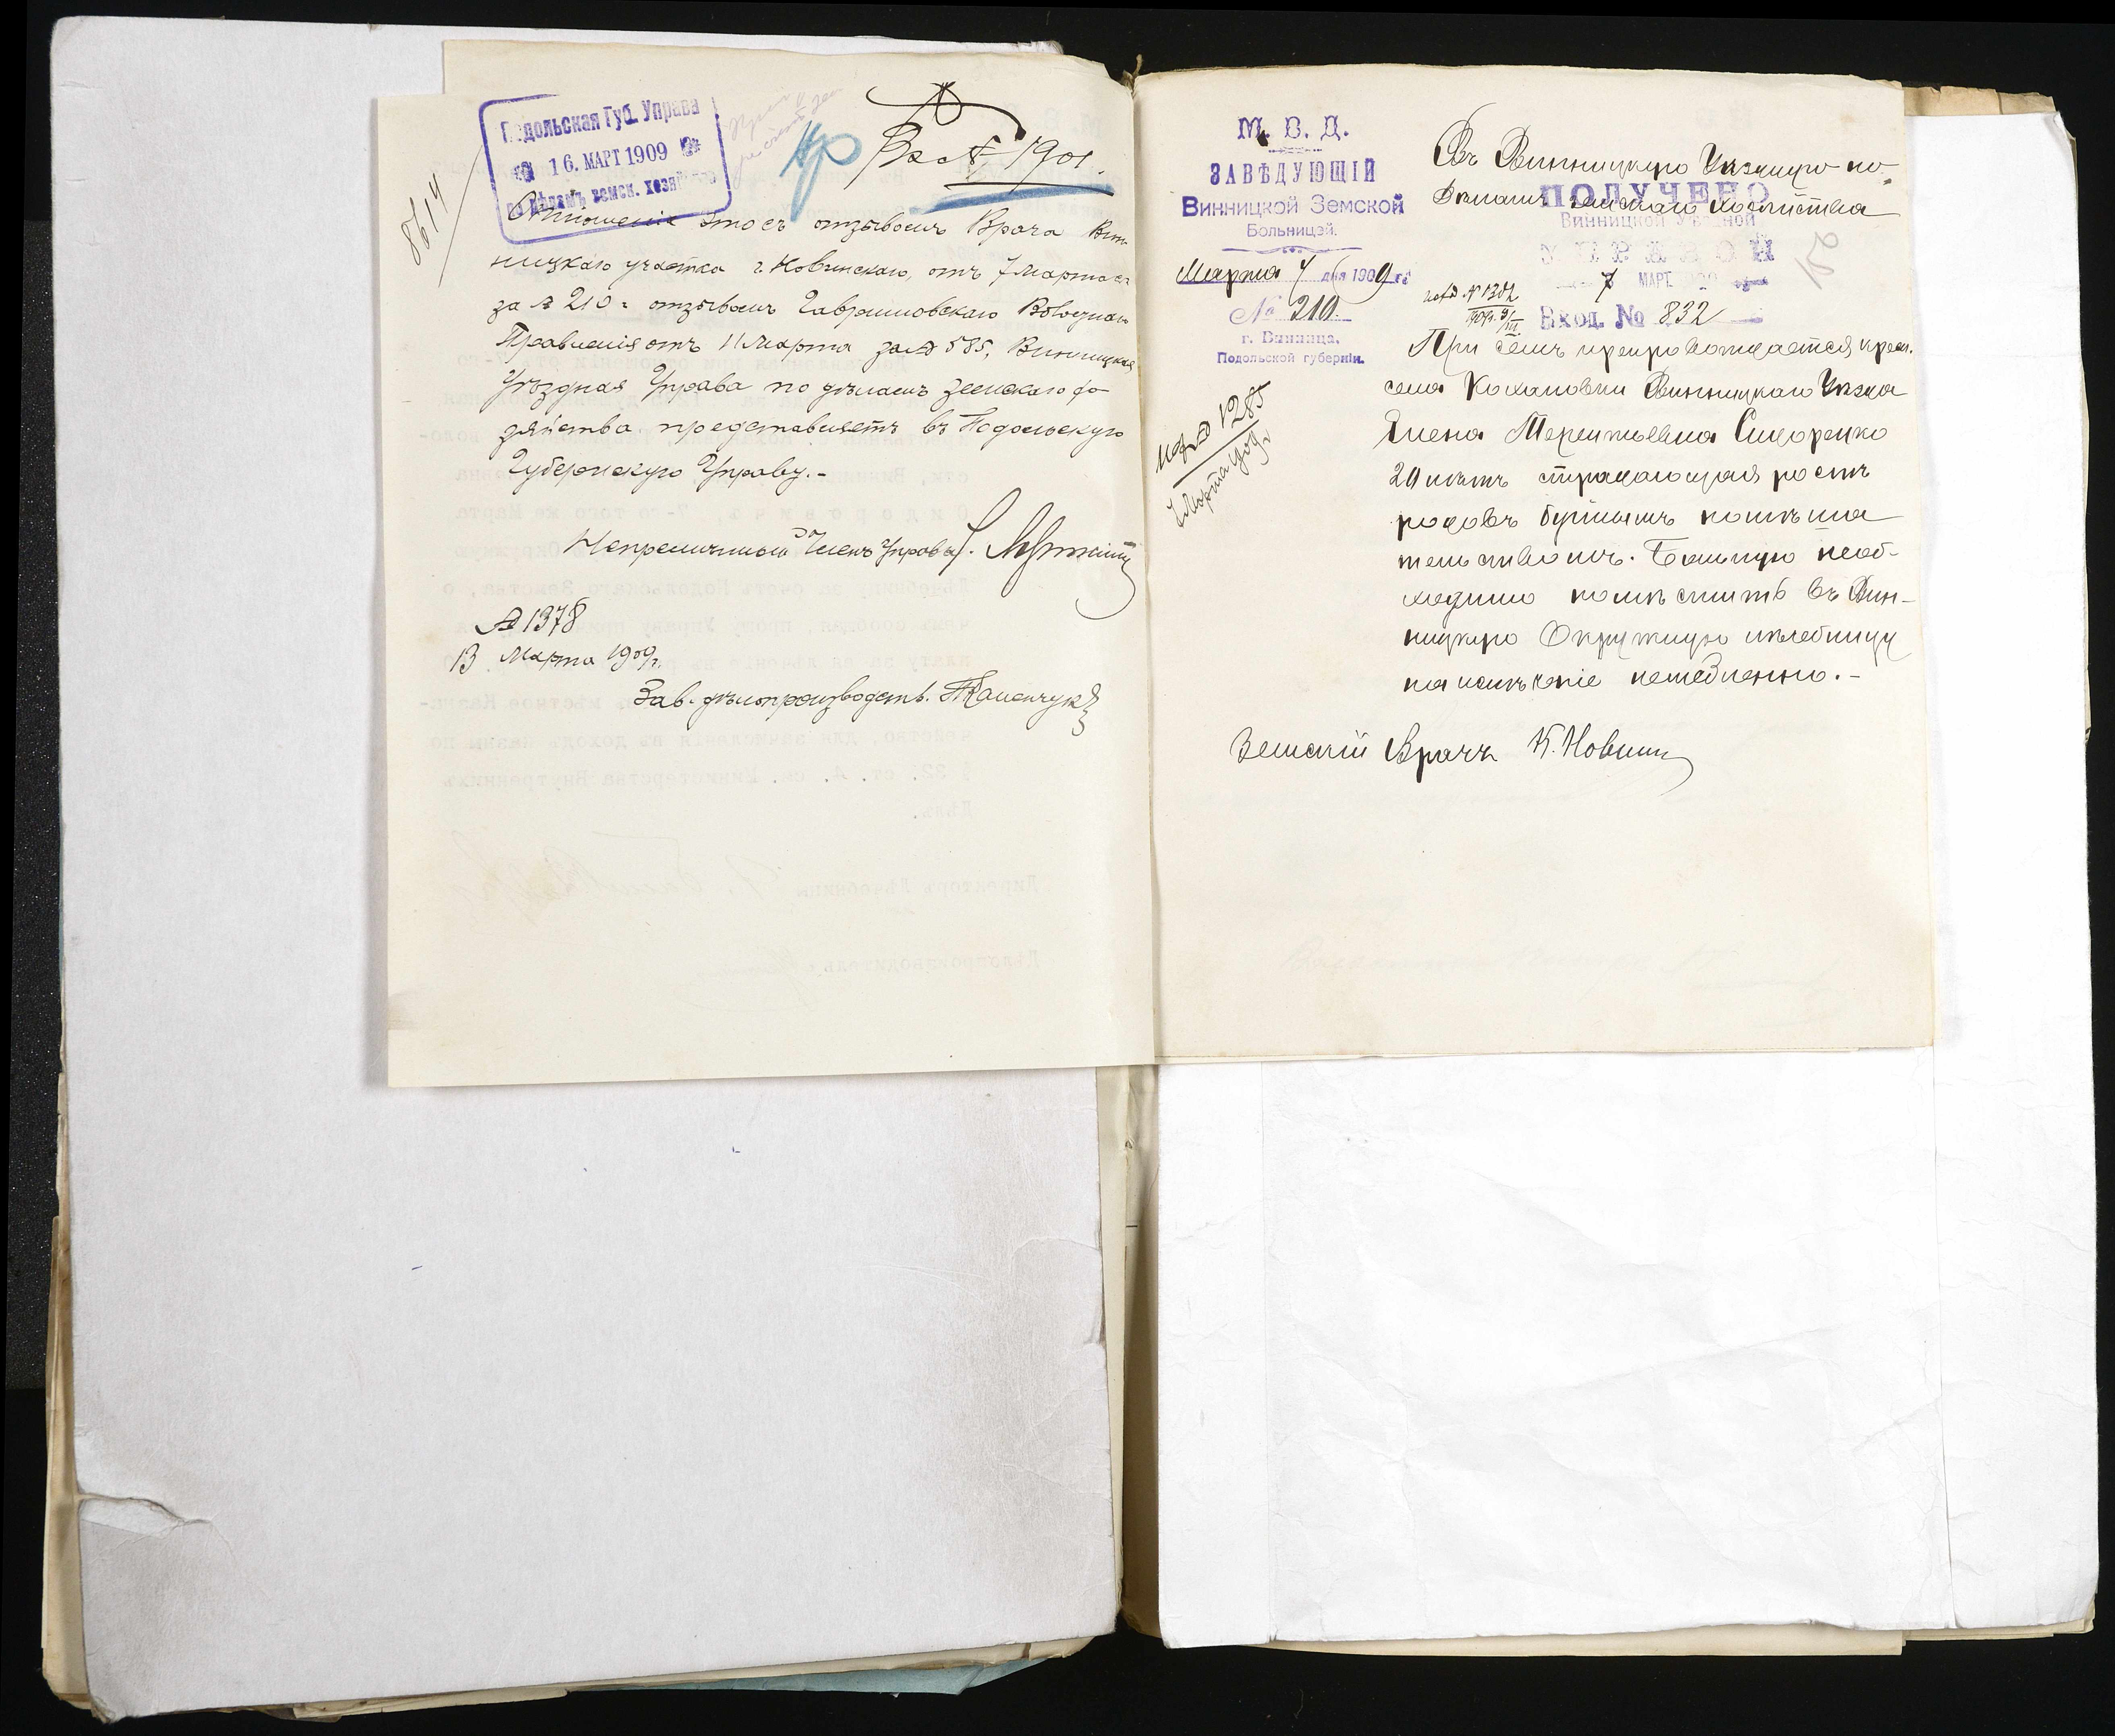 Подольская Губ. Управа
16. МАРТ 1909
по дѣламъ земск. хозяйства
8614
Вх № 1901.
Отношеніе это съ отзывомъ Врача Вин-
ницкаго участка г. Новинскаго, отъ 7 Марта
за № 210 и отзывомъ Гавришовскаго Волостнаго
Правленія отъ 11 Марта за № 585, Винницкая
Уѣздная Управа по дѣламъ Земскаго Хо-
зяйства представляетъ въ Подольскую
Губернскую Управу.-
Непремѣнный Членъ Управы
№ 1378
13 Марта 1909 г.
Зав. дѣлопроизводств.
М. В. Д.
ЗАВѢДУЮЩІЙ
Винницкой Земской
Больницей.
Марта 7 дня 1909 г.
№ 210.
г. Винница,
Подольской губерніи.
№ 1285
Марта 1909 г.
Въ Винницкую Уѣздную по
Дѣламъ Земскаго Хозяйства
ПОЛУЧЕНО
Винницкой Уѣздной
УПРАВОЙ
7 МАРТ 1909
Вход. № 832
№ 1302
1909 г. 9/III
При семъ препровождается крест.
села Кохановки Винницкаго Уѣзда
Елена Терентьевна Сидоренко
20 лѣтъ страдающая post
родовъ буйнымъ помѣша
тельствомъ. Больную необ-
ходимо помѣстить въ Вин-
ницкую Окружную лѣчебницу
на излѣченіе немедленно.-
Земскій Врачъ К. Новин